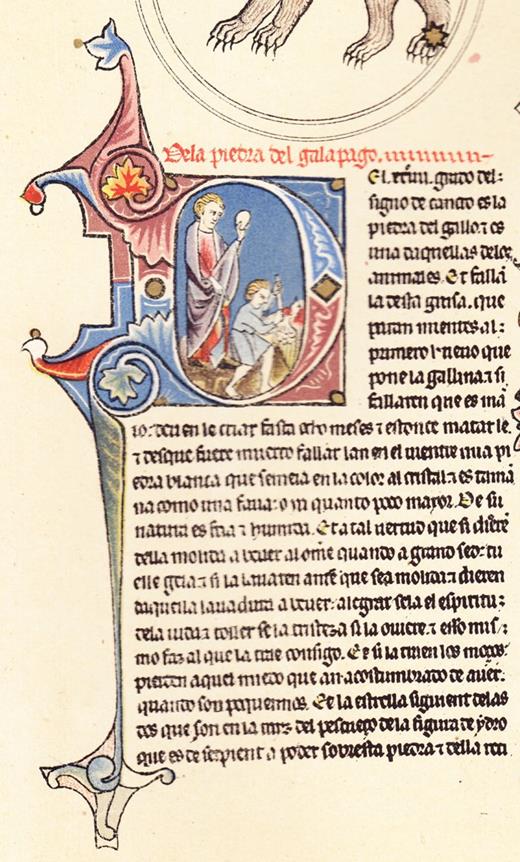 Dela piedra del galapago.
El .xxiiii. grado del
signo de cancro es la
piedra del gallo. ⁊ es
una daquellas delos
animales. Et fallā
la desta guisa. que
paran mientes al
primero h que
pone la gallina. ⁊ si
fallaren que es ma
lo: deven le criar fasta ocho meses ⁊ estonce matar le.
⁊ desque fuere muerto fallar lan en el uientre una pi
edra blanca que semeia en la color al cristal. ⁊ es tamā
na como una faua: o in quanto poco mayor. De su
natura es fria ⁊ humida. Et a tal uertud que si dierē
della molida a beuer al omē quando a grand sed: tu
elle gela. ⁊ si la lauaren ante que sea molida. ⁊ dieren
daquella lauadura a beuer: alegrar sela el espiritu
dela uida. ⁊ toller se la tristeza si la ouiere. ⁊ esso mis
mo faz al que la trae consigo. Et si la tienen los moços
pierden aquel miedo que an acostumbrado de auer.
quando son pequennos. Et la estrella siguient delas
dos que son en la del pescueço dela figura de ydro
que es de serpient a poder sobresta piedra. ⁊ della reci